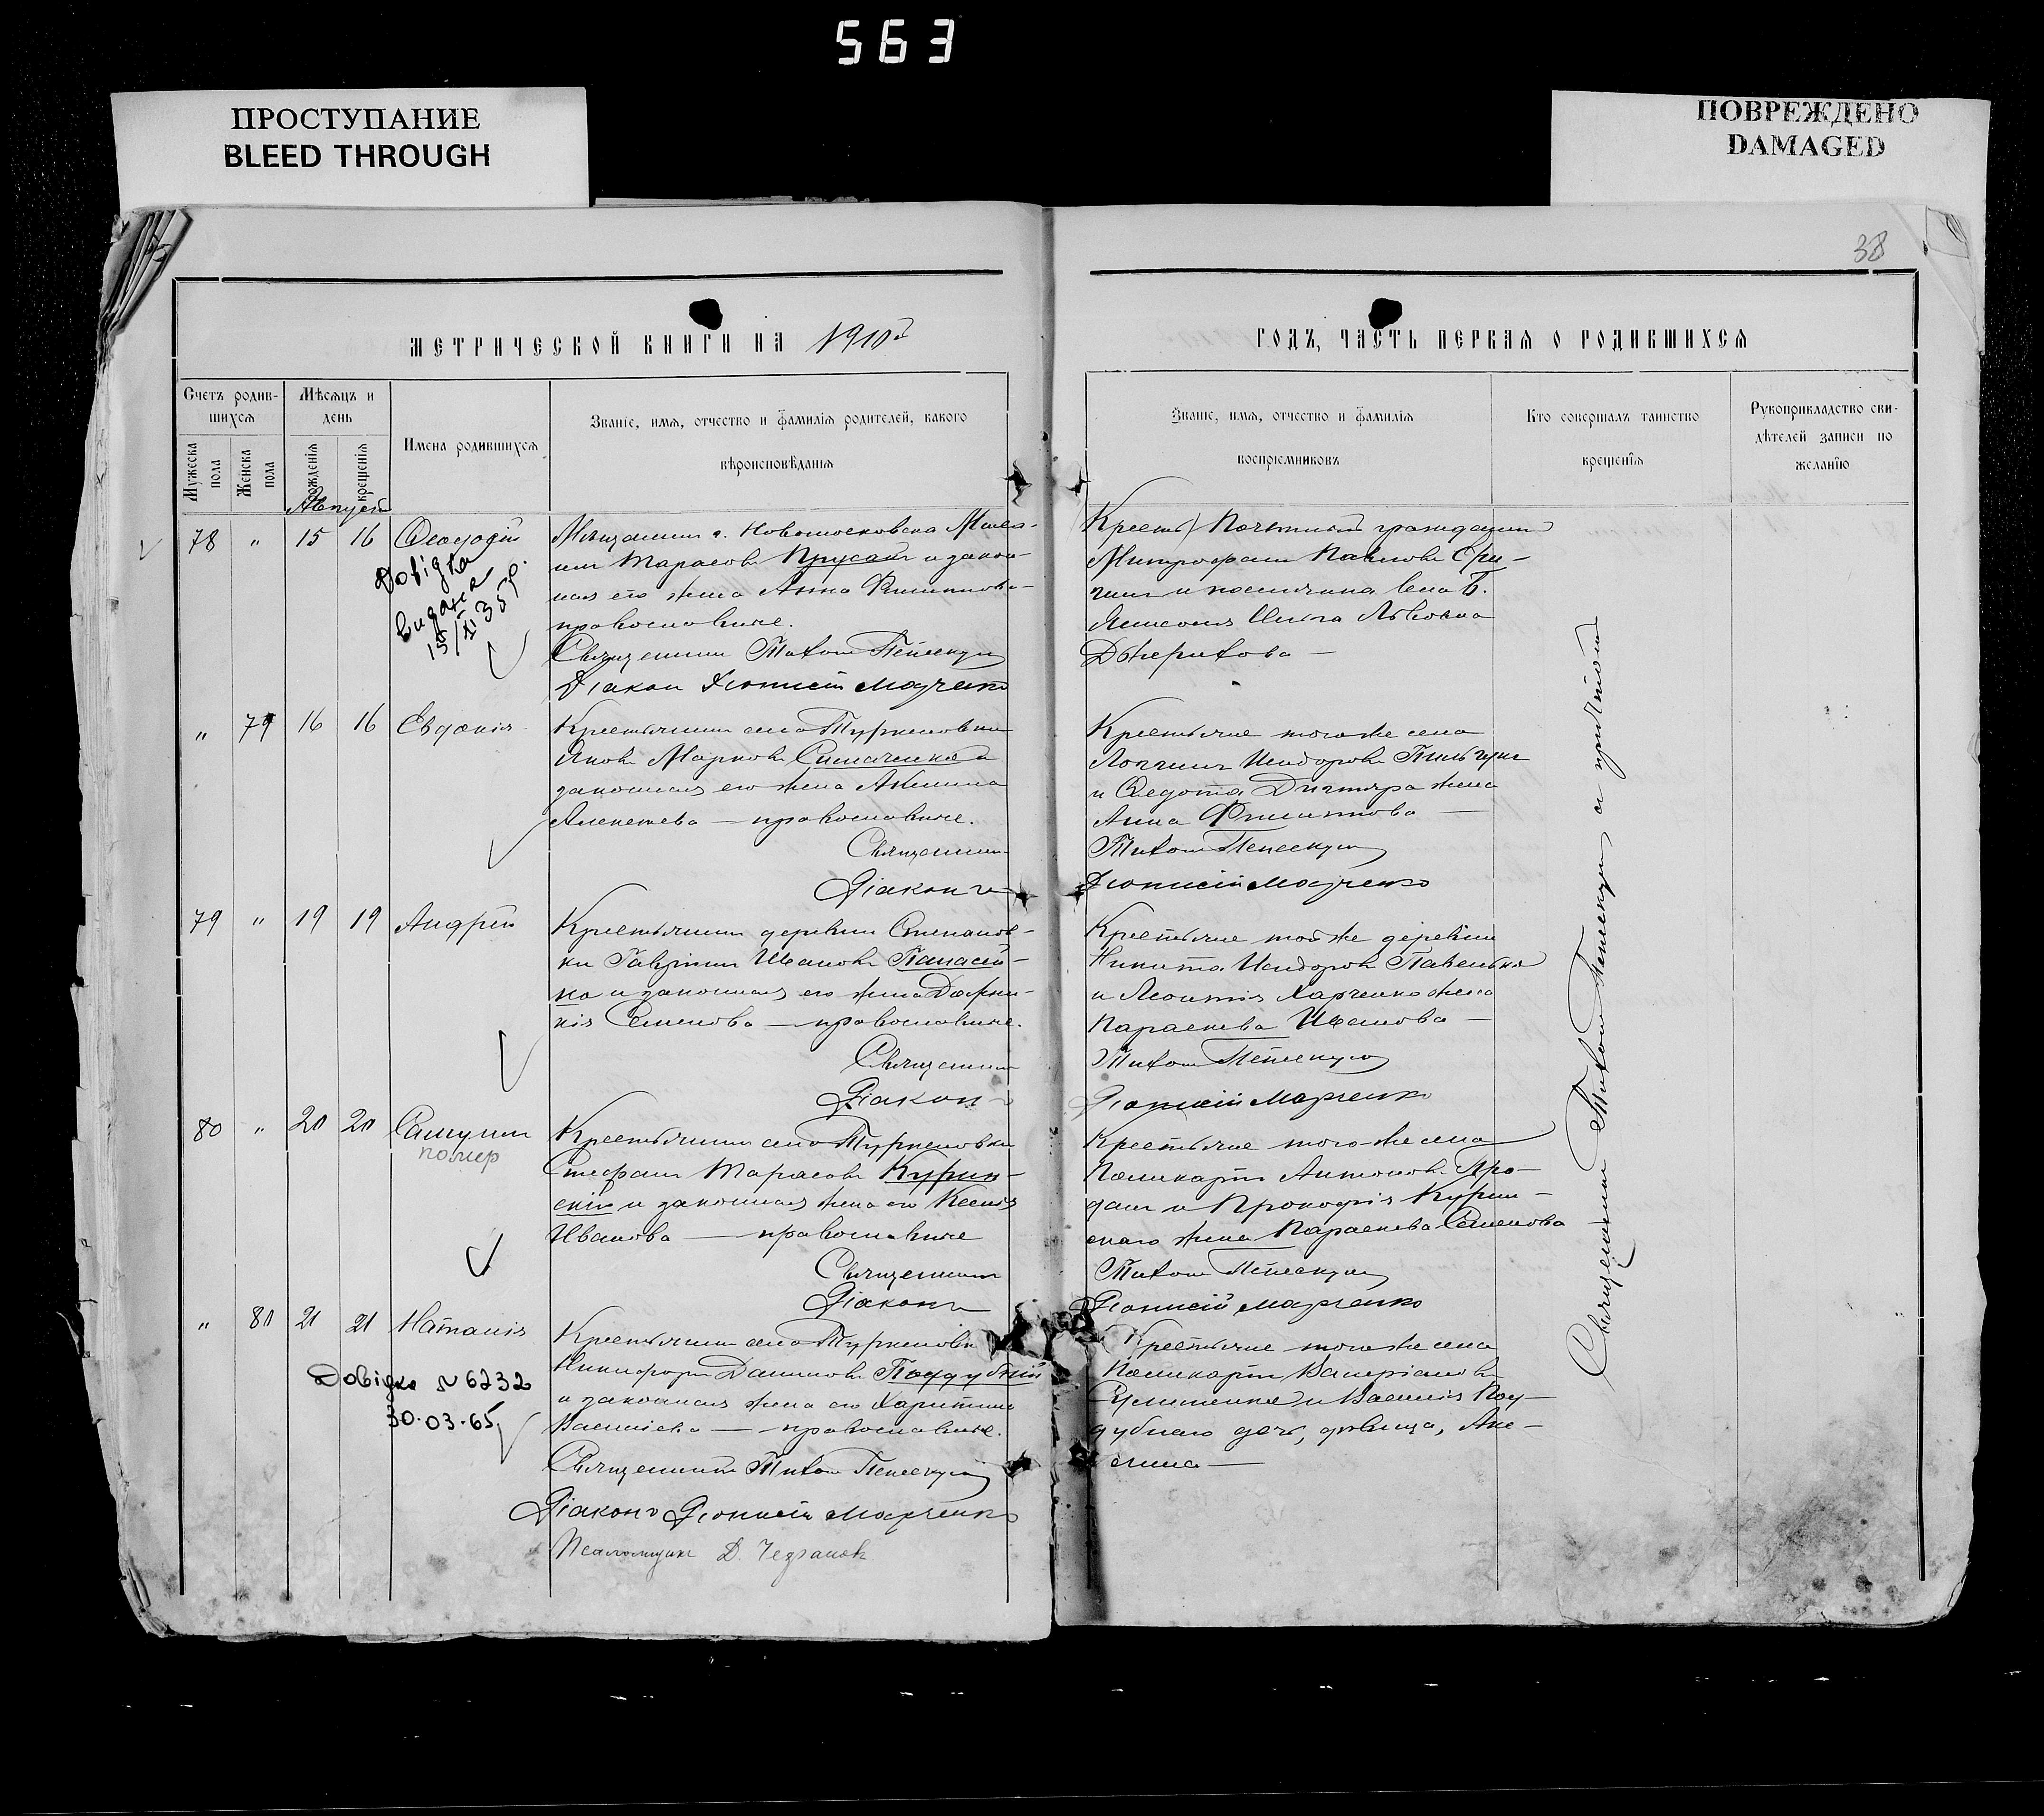 563
ПРОСТУПАНИЕ
BLEED THROUGH
ПОВРЕЖДЕНО
DAMAGED
38
МЕТРИЧЕСКОЙ КНИГИ НА 1910й
ГОДЪ, ЧАСТЬ ПЕРВАЯ О РОДИВШИХСЯ
Счетъ родив-
шихся
Мѣсяцъ и
день
Мужеска пола
Женска пола
рожденія
крещенія
Имена родившихся
Званіе, имя, отчество и фамилія родителей, какого
вѣроисповѣданія
Званіе, имя, отчество и фамилія
воспріемниковъ
Кто совершалъ таинство
крещенія
Рукоприкладство сви-
дѣтелей записи по
желанію
Августъ
78 " 15 16 Ѳеодосій
Довідка
видана
15/XI 35 р.
Мѣщанинъ г. Новомосковска
Тарасовъ Прусакъ и закон-
ная его жена Анна Филиппова
православные.
Священникъ Тихонъ
Діаконъ Діонисій
Почетный гражданинъ
Митрофанъ Павловъ
Львовна
" 79 16 16 Евдокія
Крестьянинъ села
Яковъ Марковъ Симоненко и
законная его жена Акилина
Алексѣева — православные.
Священникъ
Діаконъ
Крестьяне того же села
Логгинъ Исидоровъ
и Ѳедота жена
Анна Филиппова —
Тихонъ
Діонисій
79 " 19 19 Андрей
Крестьянинъ деревни Степанов-
ки Гавріилъ Ивановъ Панасен-
ко и законная его жена
Семенова — православные.
Священникъ
Діаконъ
Крестьяне той же деревни
Никита Исидоровъ
и Леонтія Харченко жена
Параскева Иванова —
Тихонъ
Діонисій
80 " 20 20 Самуилъ
помер
Крестьянинъ села
Стефанъ Тарасовъ Курин-
скій и законная жена его Ксенія
Иванова — православные
Священникъ
Діаконъ
Крестьяне того же села
Поликарпъ Антоновъ Про-
данъ и Прокофія Курин-
скаго жена Параскева Семенова
Тихонъ
Діонисій
" 81 21 21 Наталія
Довідка № 6232
30.03.65
Крестьянинъ села
Никифоръ Даниловъ Поддубный
и законная жена его Харитина
Василіева — православные.
Священникъ Тихонъ
Діаконъ Діонисій
Псаломщикъ Д.
Крестьяне того же села
Поликарпъ Валеріановъ
и Василія Под-
дубнаго дочь, дѣвица, Аке-
лина —
Священникъ Тихонъ с причтомъ